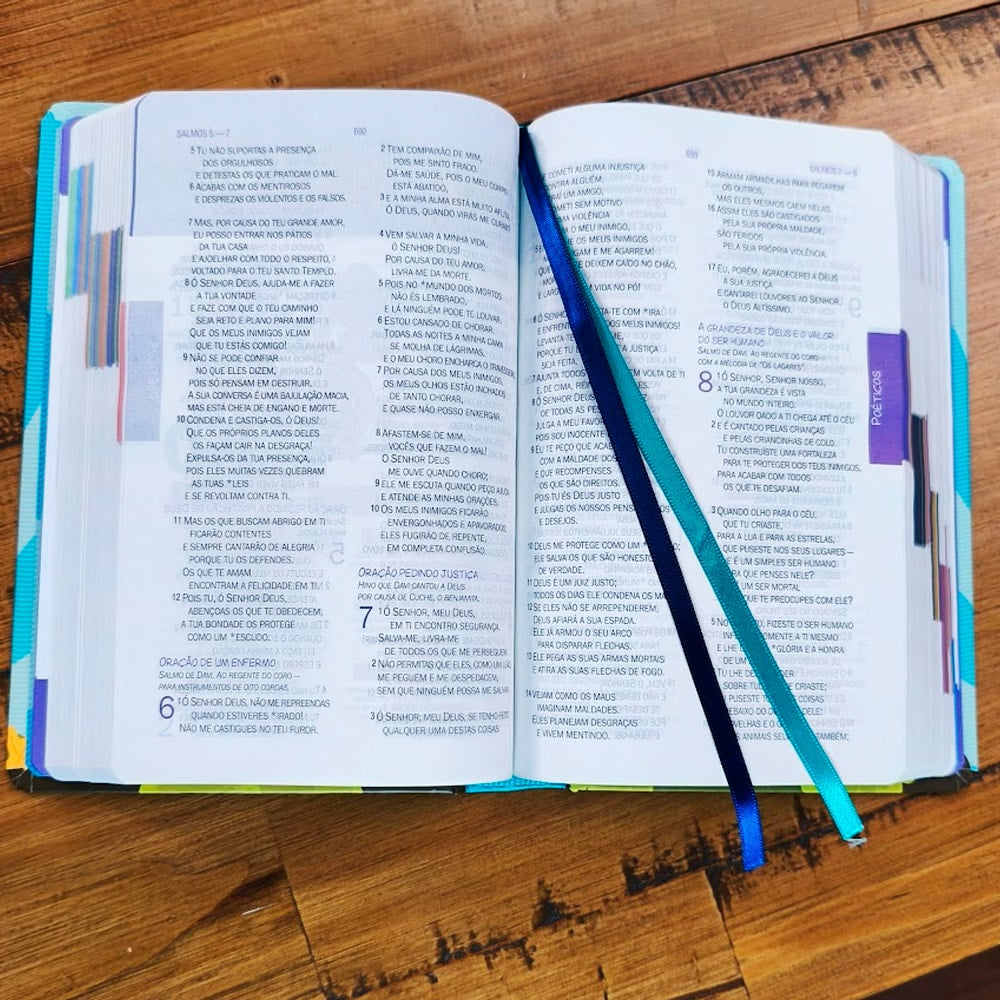 SALMOS 5 — 7
692
5 TU NÃO SUPORTAS A PRESENÇA
DOS ORGULHOSOS
E DETESTAS OS QUE PRATICAM O MAL.
6 ACABAS COM OS MENTIROSOS
E DESPREZAS OS VIOLENTOS E OS FALSOS.
7 MAS, POR CAUSA DO TEU GRANDE AMOR,
EU POSSO ENTRAR NOS PÁTIOS
DA TUA CASA
E AJOELHAR COM TODO O RESPEITO,
VOLTADO PARA O TEU SANTO TEMPLO.
8 Ó SENHOR DEUS, AJUDA-ME A FAZER
A TUA VONTADE
E FAZE COM QUE O TEU CAMINHO
SEJA RETO E PLANO PARA MIM!
QUE OS MEUS INIMIGOS VEJAM
QUE TU ESTÁS COMIGO!
9 NÃO SE PODE CONFIAR
NO QUE ELES DIZEM,
POIS SÓ PENSAM EM DESTRUIR.
A SUA CONVERSA É UMA BAJULAÇÃO MACIA,
MAS ESTÁ CHEIA DE ENGANO E MORTE.
10 CONDENA E CASTIGA-OS, Ó DEUS!
QUE OS PRÓPRIOS PLANOS DELES
OS FAÇAM CAIR NA DESGRAÇA!
EXPULSA-OS DA TUA PRESENÇA,
POIS ELES MUITAS VEZES QUEBRAM
AS TUAS *LEIS
E SE REVOLTAM CONTRA TI.
11 MAS OS QUE BUSCAM ABRIGO EM TI
FICARÃO CONTENTES
E SEMPRE CANTARÃO DE ALEGRIA
PORQUE TU OS DEFENDES.
OS QUE TE AMAM
ENCONTRAM A FELICIDADE EM TI.
12 POIS TU, Ó SENHOR DEUS,
ABENÇOAS OS QUE TE OBEDECEM,
A TUA BONDADE OS PROTEGE
COMO UM *ESCUDO.
ORAÇÃO DE UM ENFERMO
SALMO DE DAVI. AO REGENTE DO CORO —
PARA INSTRUMENTOS DE OITO CORDAS.
6 1Ó SENHOR DEUS, NÃO ME REPREENDAS
QUANDO ESTIVERES *IRADO!
NÃO ME CASTIGUES NO TEU FUROR.
2 TEM COMPAIXÃO DE MIM,
POIS ME SINTO FRACO.
DÁ-ME SAÚDE, POIS O MEU CORPO
ESTÁ ABATIDO,
3 E A MINHA ALMA ESTÁ MUITO AFLITA.
Ó DEUS, QUANDO VIRÁS ME CURAR?
4 VEM SALVAR A MINHA VIDA,
Ó SENHOR DEUS!
POR CAUSA DO TEU AMOR,
LIVRA-ME DA MORTE.
5 POIS NO *MUNDO DOS MORTOS
NÃO ÉS LEMBRADO,
E LÁ NINGUÉM PODE TE LOUVAR.
6 ESTOU CANSADO DE CHORAR.
TODAS AS NOITES A MINHA CAMA
SE MOLHA DE LÁGRIMAS,
E O MEU CHORO ENCHARCA O TRAVESSEIRO.
7 POR CAUSA DOS MEUS INIMIGOS,
OS MEUS OLHOS ESTÃO INCHADOS
DE TANTO CHORAR,
E QUASE NÃO POSSO ENXERGAR.
8 AFASTEM-SE DE MIM,
VOCÊS QUE FAZEM O MAL!
O SENHOR DEUS
ME OUVE QUANDO CHORO;
9 ELE ME ESCUTA QUANDO PEÇO AJUDA
E ATENDE AS MINHAS ORAÇÕES.
10 OS MEUS INIMIGOS FICARÃO
ENVERGONHADOS E APAVORADOS;
ELES FUGIRÃO DE REPENTE,
EM COMPLETA CONFUSÃO.
ORAÇÃO PEDINDO JUSTIÇA
HINO QUE DAVI CANTOU A DEUS
POR CAUSA DE CUCHE, O BENJAMITA.
7 1Ó SENHOR, MEU DEUS,
EM TI ENCONTRO SEGURANÇA.
SALVA-ME, LIVRA-ME
DE TODOS OS QUE ME PERSEGUEM.
2 NÃO PERMITAS QUE ELES, COMO UM LEÃO,
ME PEGUEM E ME DESPEDACEM,
SEM QUE NINGUÉM POSSA ME SALVAR.
3 Ó SENHOR, MEU DEUS, SE TENHO FEITO
QUALQUER UMA DESTAS COISAS:
693
COMETI ALGUMA INJUSTIÇA
CONTRA ALGUÉM,
TRAÍ UM AMIGO,
COMETI SEM MOTIVO
VIOLÊNCIA
O MEU INIMIGO,
OS MEUS INIMIGOS
E ME AGARREM!
DEIXEM CAÍDO NO CHÃO,
VIDA NO PÓ!
6 Ó SENHOR, -TE COM *IRA
E ENFRENTA DOS MEUS INIMIGOS!
LEVANTA-TE
PORQUE TU A JUSTIÇA
SEJA FEITA.
7 AJUNTA TODOS EM VOLTA DE TI
E, DE CIMA,
8 Ó SENHOR DEUS
DE TODAS AS
JULGA A MEU FAVOR
POIS SOU INOCENTE
9 EU TE PEÇO QUE
COM A MALDADE DOS
E QUE RECOMPENSES
OS QUE SÃO DIREITOS.
POIS TU ÉS DEUS JUSTO
E JULGAS OS NOSSOS
E DESEJOS.
10 DEUS ME PROTEGE COMO UM
ELE SALVA OS QUE SÃO HONESTOS
DE VERDADE.
11 DEUS É UM JUIZ JUSTO;
TODOS OS DIAS ELE CONDENA OS
12 SE ELES NÃO SE ARREPENDEREM,
DEUS AFIARÁ A SUA ESPADA.
ELE JÁ ARMOU O SEU ARCO
PARA DISPARAR FLECHAS;
13 ELE PEGA AS SUAS ARMAS MORTAIS
E ATIRA AS SUAS FLECHAS DE FOGO.
14 VEJAM COMO OS MAUS
IMAGINAM MALDADES.
ELES PLANEJAM DESGRAÇAS
E VIVEM MENTINDO.
15 ARMAM ARMADILHAS PARA PEGAREM
OS OUTROS,
MAS ELES MESMOS CAEM NELAS.
16 ASSIM ELES SÃO CASTIGADOS
PELA SUA PRÓPRIA MALDADE,
SÃO FERIDOS
PELA SUA PRÓPRIA VIOLÊNCIA.
17 EU, PORÉM, AGRADECEREI A DEUS
A SUA JUSTIÇA
E CANTAREI LOUVORES AO SENHOR,
O DEUS ALTÍSSIMO.
A GRANDEZA DE DEUS E O VALOR
DO SER HUMANO
SALMO DE DAVI. AO REGENTE DO CORO —
COM A MELODIA DE "OS LAGARES".
8 1Ó SENHOR, SENHOR NOSSO,
A TUA GRANDEZA É VISTA
NO MUNDO INTEIRO.
O LOUVOR DADO A TI CHEGA ATÉ O CÉU
2 E É CANTADO PELAS CRIANÇAS
E PELAS CRIANCINHAS DE COLO.
TU CONSTRUÍSTE UMA FORTALEZA
PARA TE PROTEGER DOS TEUS INIMIGOS,
PARA ACABAR COM TODOS
OS QUE TE DESAFIAM.
3 QUANDO OLHO PARA O CÉU,
QUE TU CRIASTE,
PARA A LUA E PARA AS ESTRELAS,
QUE PUSESTE NOS SEUS LUGARES —
É UM SIMPLES SER HUMANO
QUE PENSES NELE?
UM SER MORTAL
QUE TE PREOCUPES COM ELE?
5 NO FIZESTE O SER HUMANO
A TI MESMO
E LHE *GLÓRIA E A HONRA
DE UM
TU LHE
SOBRE TUDO CRIASTE;
TU PUSESTE COISAS
DEBAIXO DO DELE:
OVELHAS E O
ANIMAIS TAMBÉM;
POÉTICOS